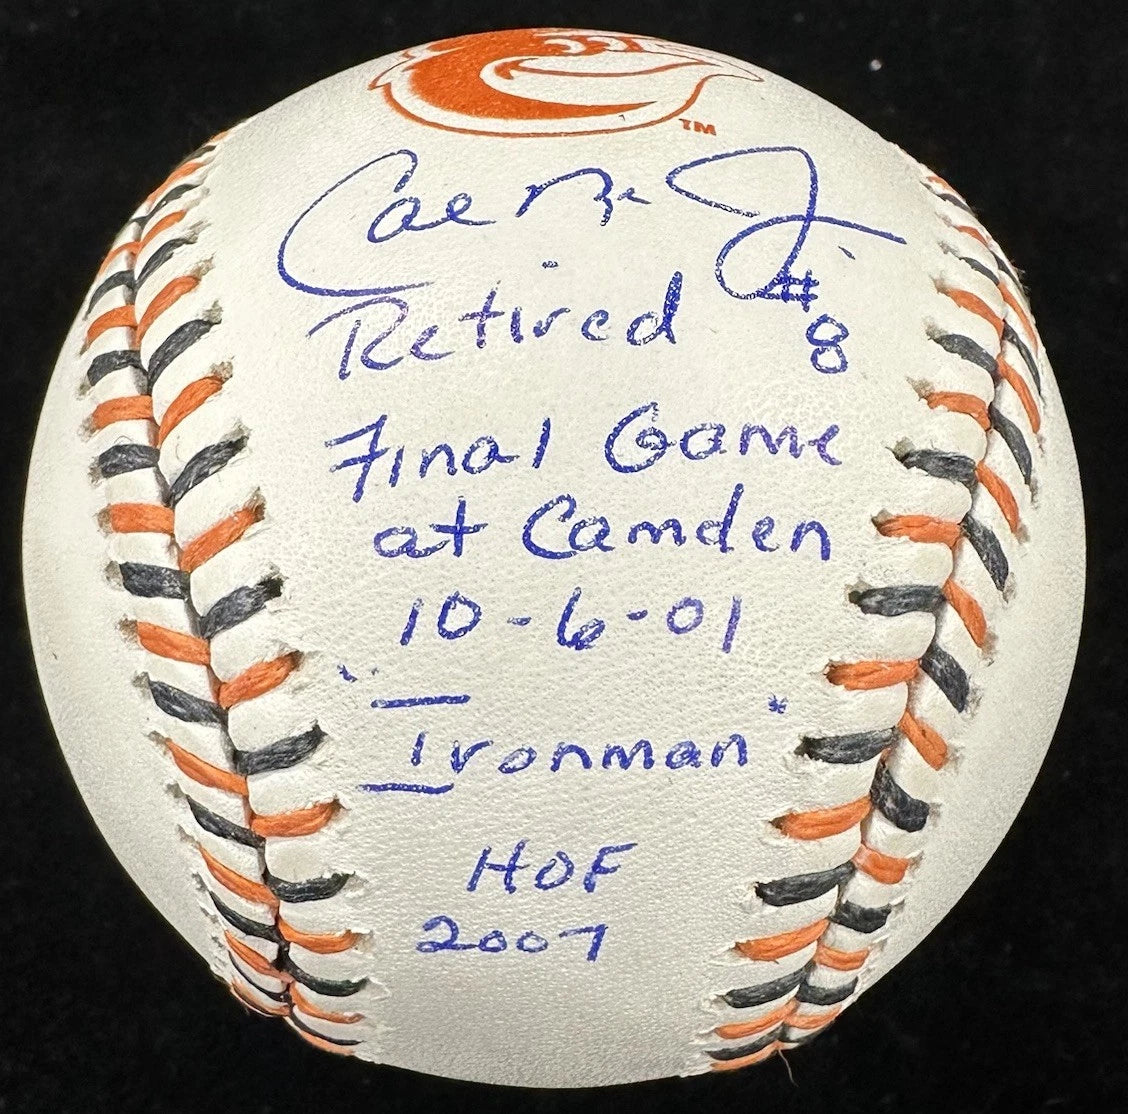 TM
Cal Ripken Jr
Retired #8
Final Game
at Camden
10-6-01
"Ironman"
HOF
2007